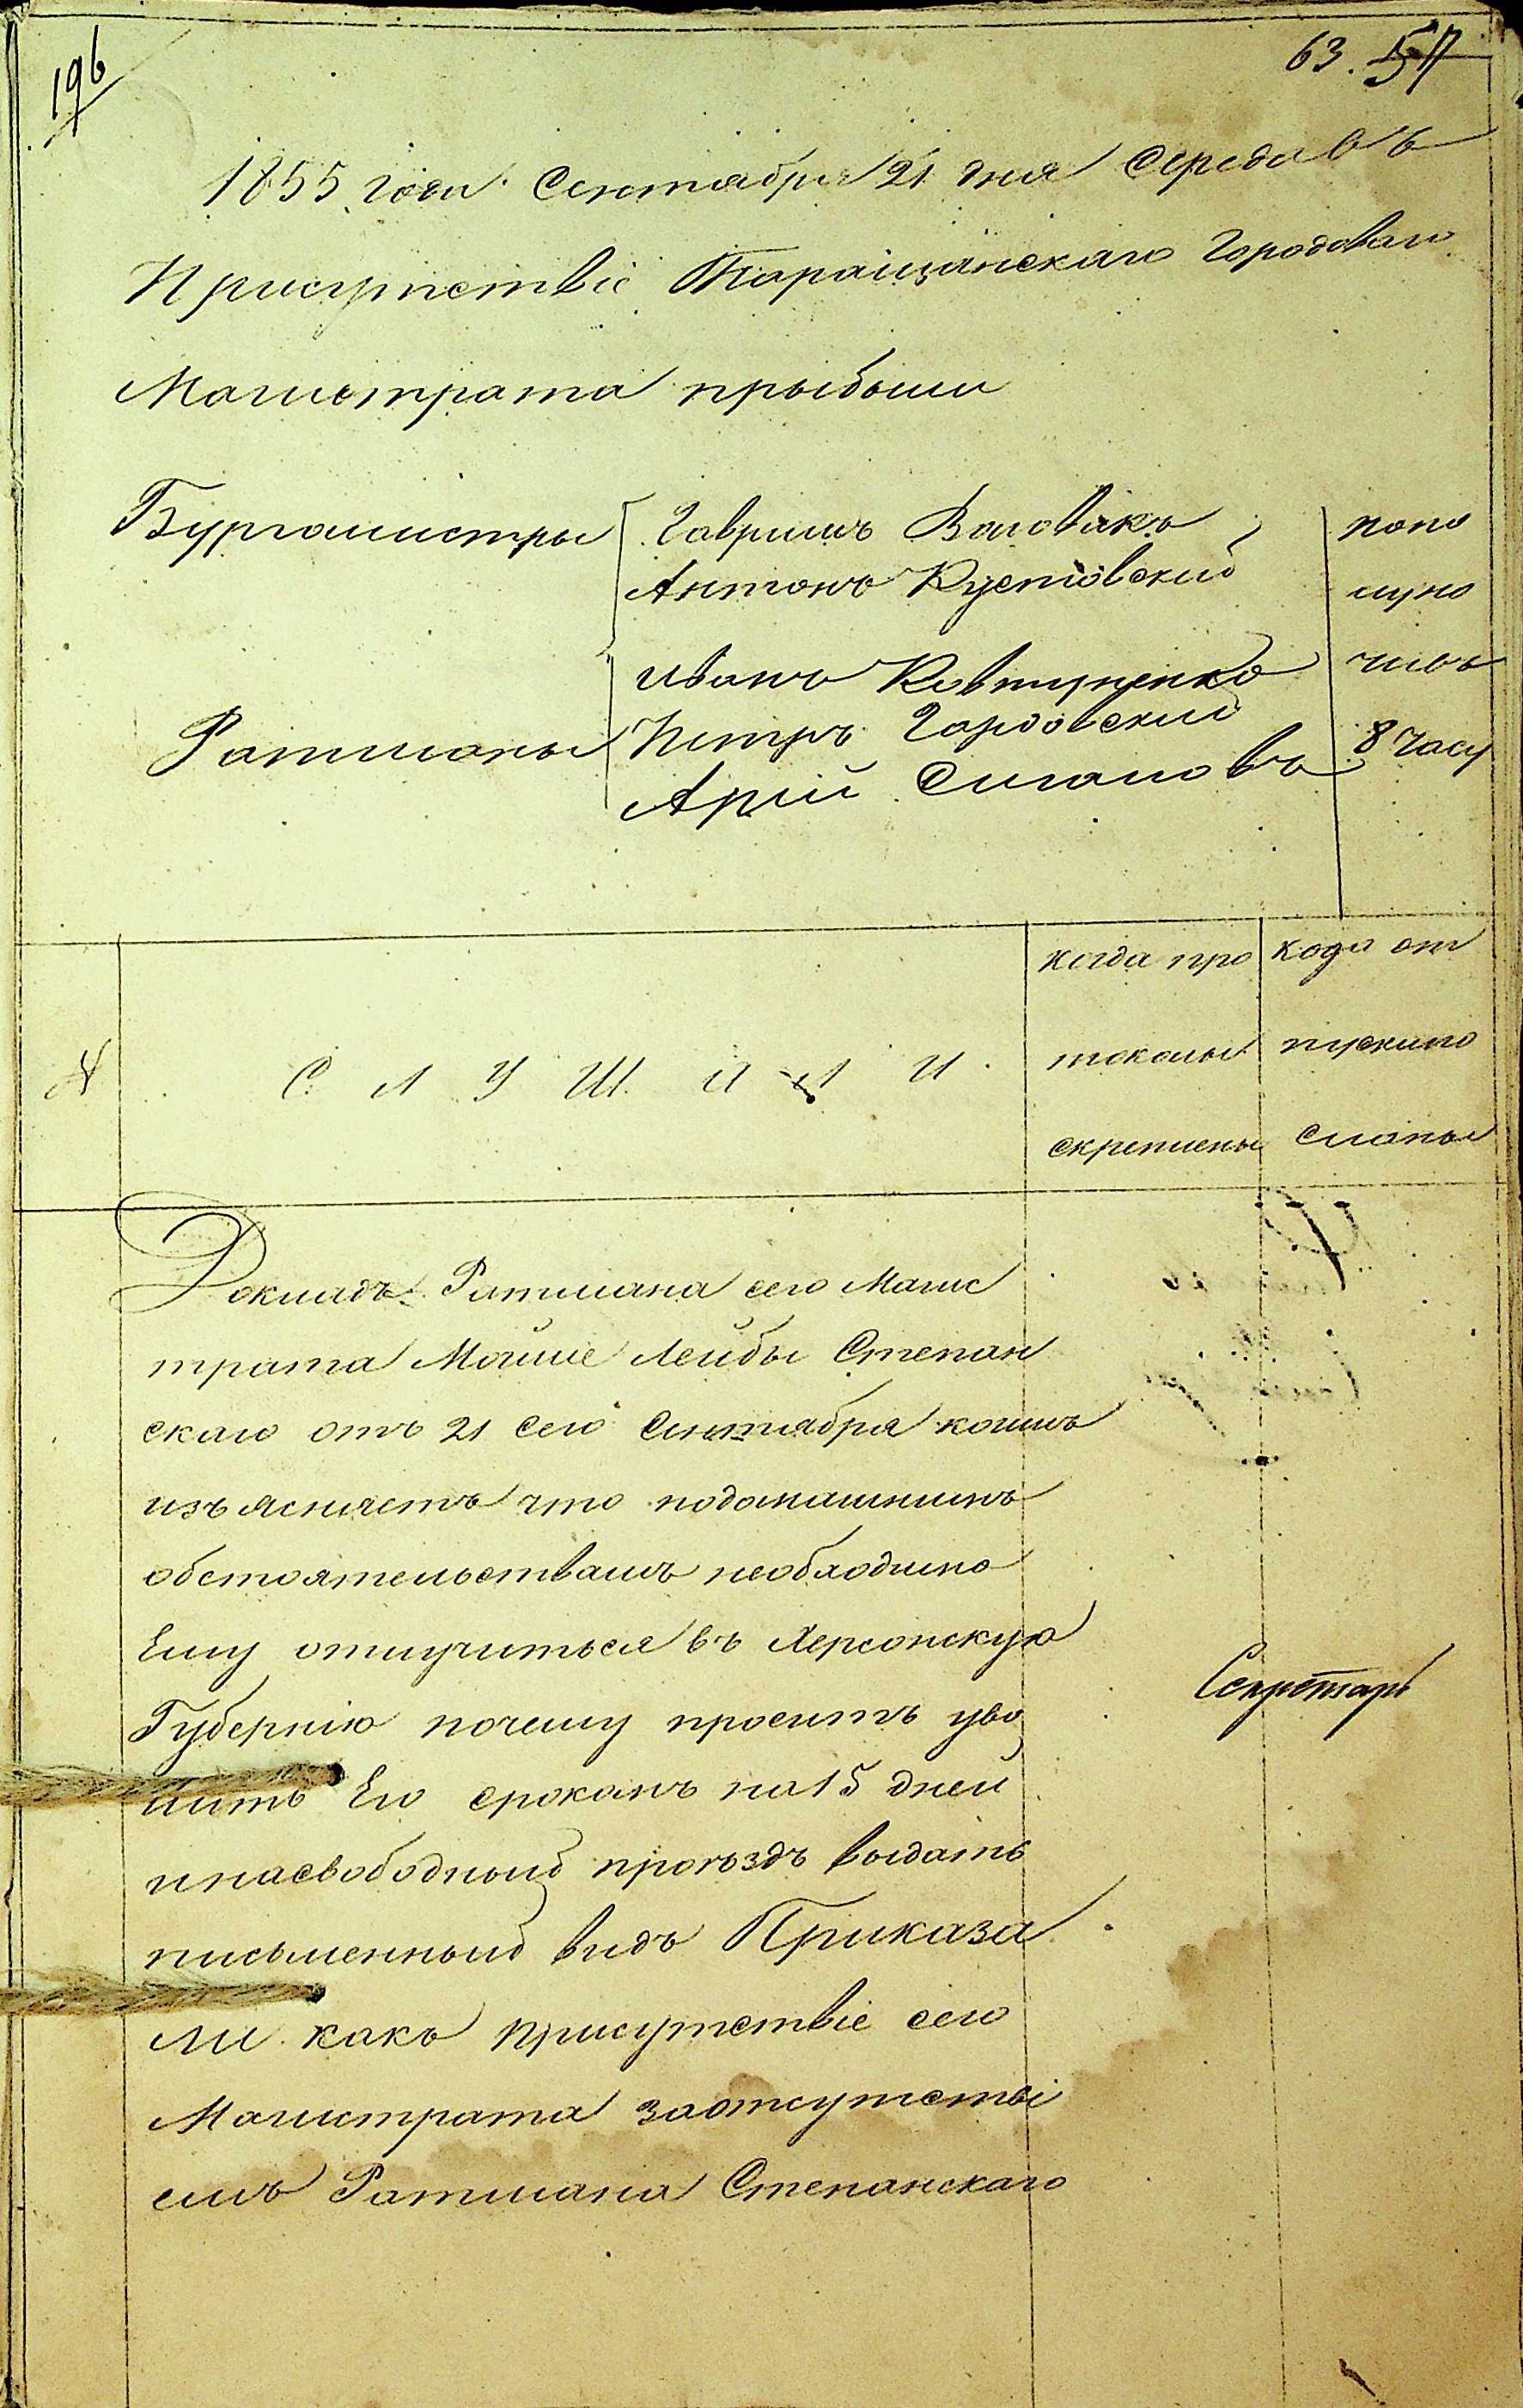 196
63. 57
1855 года Сентября 21 дня Середа въ
Присутствіе Таращанскаго Городоваго
Магистрата прыбыли
Бургомистры
Гаврилъ
Антонъ Кустовский
попо
луно
Иванъ Ковтуненко
чивъ
Ратманы
Петръ
8 часу
Арій
когда про
кода от
№
С Л У Ш А Л И
токолы
пускано
скреплены
сланы
Докладъ Ратмана сего Магис
трата Мошие Лейбы Степан
скаго отъ 21 сего Сентября коимъ
изъясняетъ что подомашнимъ
обстоятельствамъ необходимо
Ему отлучиться въ Херсонскую
Губернію почему проситъ уво
лить Его срокомъ на 15 дней
инасвободный проѣздъ выдать
письменный видъ Приказа
ли какъ присутствіе сего
Магистрата заотсутстві
емъ Ратмана Степанскаго
Секретарь